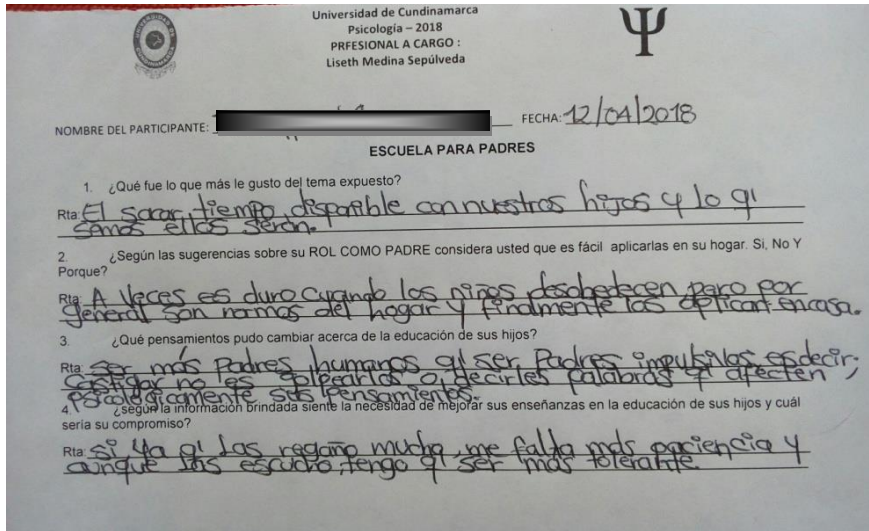 Universidad de Cundinamarca
Psicología – 2018
PRFESIONAL A CARGO :
Liseth Medina Sepúlveda
NOMBRE DEL PARTICIPANTE:
FECHA: 12/04/2018
ESCUELA PARA PADRES
1. ¿Qué fue lo que más le gusto del tema expuesto?
Rta: El sacar tiempo disponible con nuestros hijos y lo q'
somos ellos serán.
2. ¿Según las sugerencias sobre su ROL COMO PADRE considera usted que es fácil aplicarlas en su hogar. Si, No Y
Porque?
Rta: A Veces es duro cuando los niños desobedecen pero por
general son normas del hogar y finalmente las aplican en casa.
3. ¿Qué pensamientos pudo cambiar acerca de la educación de sus hijos?
Rta: Ser más Padres humanos q' ser Padres impulsivos es decir;
castigar no es golpearlos o decirles palabras q' afecten,
Psicologicamente sus pensamientos.
4. ¿según la información brindada siente la necesidad de mejorar sus enseñanzas en la educación de sus hijos y cuál
seria su compromiso?
Rta: Si Ya q' Las regaño mucho, me falta más paciencia y
aunque las escucho, tengo q' ser más tolerante.